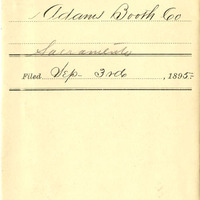 Adams Booth Co
Sacramento
Filed Sep 3rd, 1895